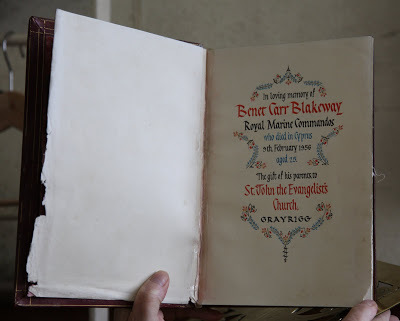 In loving memory of
Benet Carr Blakeway
Royal Marine Commandos
who died in Cyprus
9th. February 1956
aged 25.
The gift of his parents to
St. John the Evangelist's
Church,
GRAYRIGG